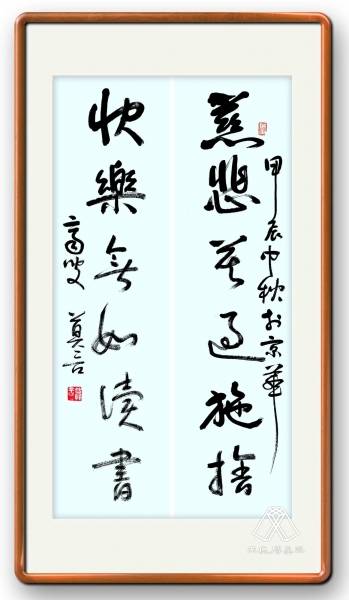 慈悲莫過施捨
甲辰中秋於京華
快樂無如讀書
高密 莫言